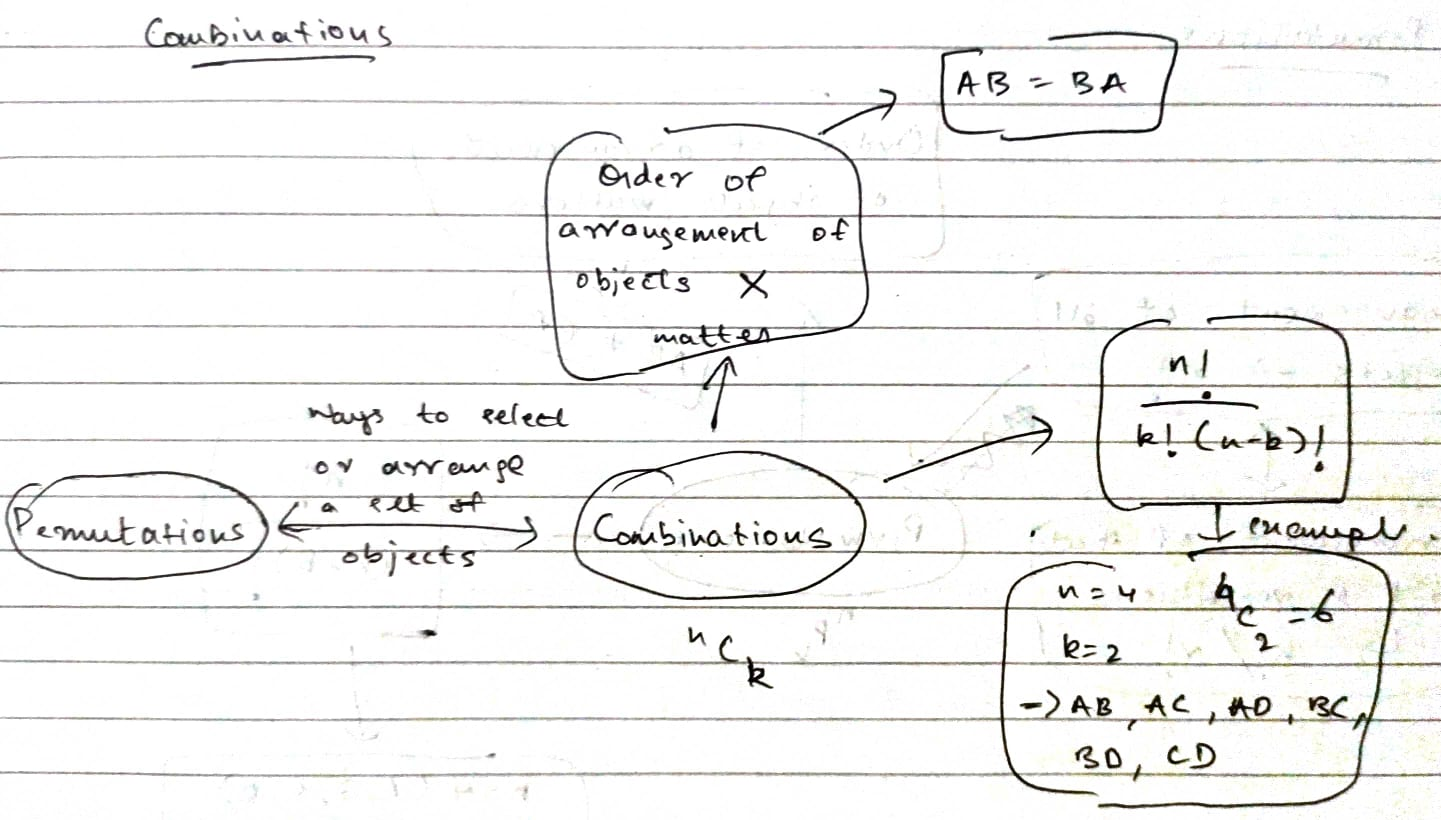 Combinations
AB = BA
Order of
arrangement of
objects X
matter
n!
k! (n-k)!
Ways to select
or arrange
a set of
objects
Permutations
Combinations
example.
nCk
n=4 4C2 = 6
k=2
-> AB, AC, AD, BC,
BD, CD